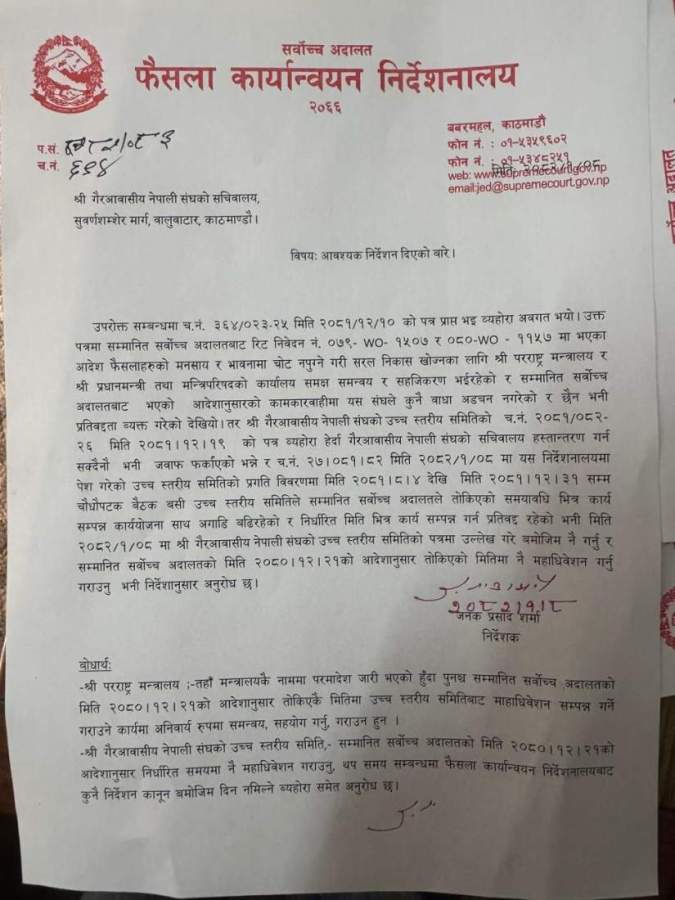 सर्वोच्च अदालत
फैसला कार्यान्वयन निर्देशनालय
२०६६
बबरमहल, काठमाडौं
प.सं.
फोन नं. : ०१-५३५९६०२
च.नं. ६९४
फोन नं. : ०१-५३४८२५१
मिति २०८२/१/०८
web: www.supremecourt.gov.np
email:jed@supremecourt.gov.np
श्री गैरआवासीय नेपाली संघको सचिवालय,
सुवर्णशम्शेर मार्ग, वालुवाटार, काठमाण्डौ।
विषयः आवश्यक निर्देशन दिएको बारे।
उपरोक्त सम्बन्धमा च.नं. ३६४/०२३-२५ मिति २०८१/१२/१० को पत्र प्राप्त भइ व्यहोरा अवगत भयो। उक्त
पत्रमा सम्मानित सर्वोच्च अदालतबाट रिट निवेदन नं. ०७९- WO- १५०७ र ०८०-WO - ११५७ मा भएका
आदेश फैसलाहरुको मनसाय र भावनामा चोट नपुग्ने गरी सरल निकास खोज्नका लागि श्री परराष्ट्र मन्त्रालय र
श्री प्रधानमन्त्री तथा मन्त्रिपरिषदको कार्यालय समक्ष समन्वय र सहजिकरण भईरहेको र सम्मानित सर्वोच्च
अदालतबाट भएको आदेशानुसारको कामकारवाहीमा यस संघले कुनै वाधा अडचन नगरेको र छैन भनी
प्रतिवद्दता व्यक्त गरेको देखियो। तर श्री गैरआवासीय नेपाली संघको उच्च स्तरीय समितिको च.नं. २०८१/०८२-
२६ मिति २०८१।१२।१९ को पत्र व्यहोरा हेर्दा गैरआवासीय नेपाली संघको सचिवालय हस्तान्तरण गर्न
सक्दैनौ भनी जवाफ फर्काएको भन्ने र च.नं. २७।०८१।८२ मिति २०८२/१/०८ मा यस निर्देशनालयमा
पेश गरेको उच्च स्तरीय समितिको प्रगति विवरणमा मिति २०८१।८।४ देखि मिति २०८१।१२।३१ सम्म
चौधौपटक बैठक बसी उच्च स्तरीय समितिले सम्मानित सर्वोच्च अदालतले तोकिएको समयावधि भित्र कार्य
सम्पन्न कार्ययोजना साथ अगाडि बढिरहेको र निर्धारित मिति भित्र कार्य सम्पन्न गर्न प्रतिवद्द रहेको भनी मिति
२०८२/१/०८ मा श्री गैरआवासीय नेपाली संघको उच्च स्तरीय समितिको पत्रमा उल्लेख गरे बमोजिम नै गर्नु र
सम्मानित सर्वोच्च अदालतको मिति २०८०।१२।२१को आदेशानुसार तोकिएको मितिमा नै महाधिवेशन गर्नु
गराउनु भनी निर्देशानुसार अनुरोध छ।
२०८२।१।८
जनक प्रसाद शर्मा
निर्देशक
बोधार्थः
-श्री परराष्ट्र मन्त्रालय :-तहाँ मन्त्रालयकै नाममा परमादेश जारी भएको हुँदा पुनश्च सम्मानित सर्वोच्च अदालतको
मिति २०८०।१२।२१को आदेशानुसार तोकिएकै मितिमा उच्च स्तरीय समितिबाट माहाधिवेशन सम्पन्न गर्ने
गराउने कार्यमा अनिवार्य रुपमा समन्वय, सहयोग गर्नु, गराउन हुन ।
-श्री गैरआवासीय नेपाली संघको उच्च स्तरीय समिति,- सम्मानित सर्वोच्च अदालतको मिति २०८०।१२।२१को
आदेशानुसार निर्धारित समयमा नै महाधिवेशन गराउनु, थप समय सम्बन्धमा फैसला कार्यान्वयन निर्देशनालयबाट
कुनै निर्देशन कानून बमोजिम दिन नमिल्ने व्यहोरा समेत अनुरोध छ।